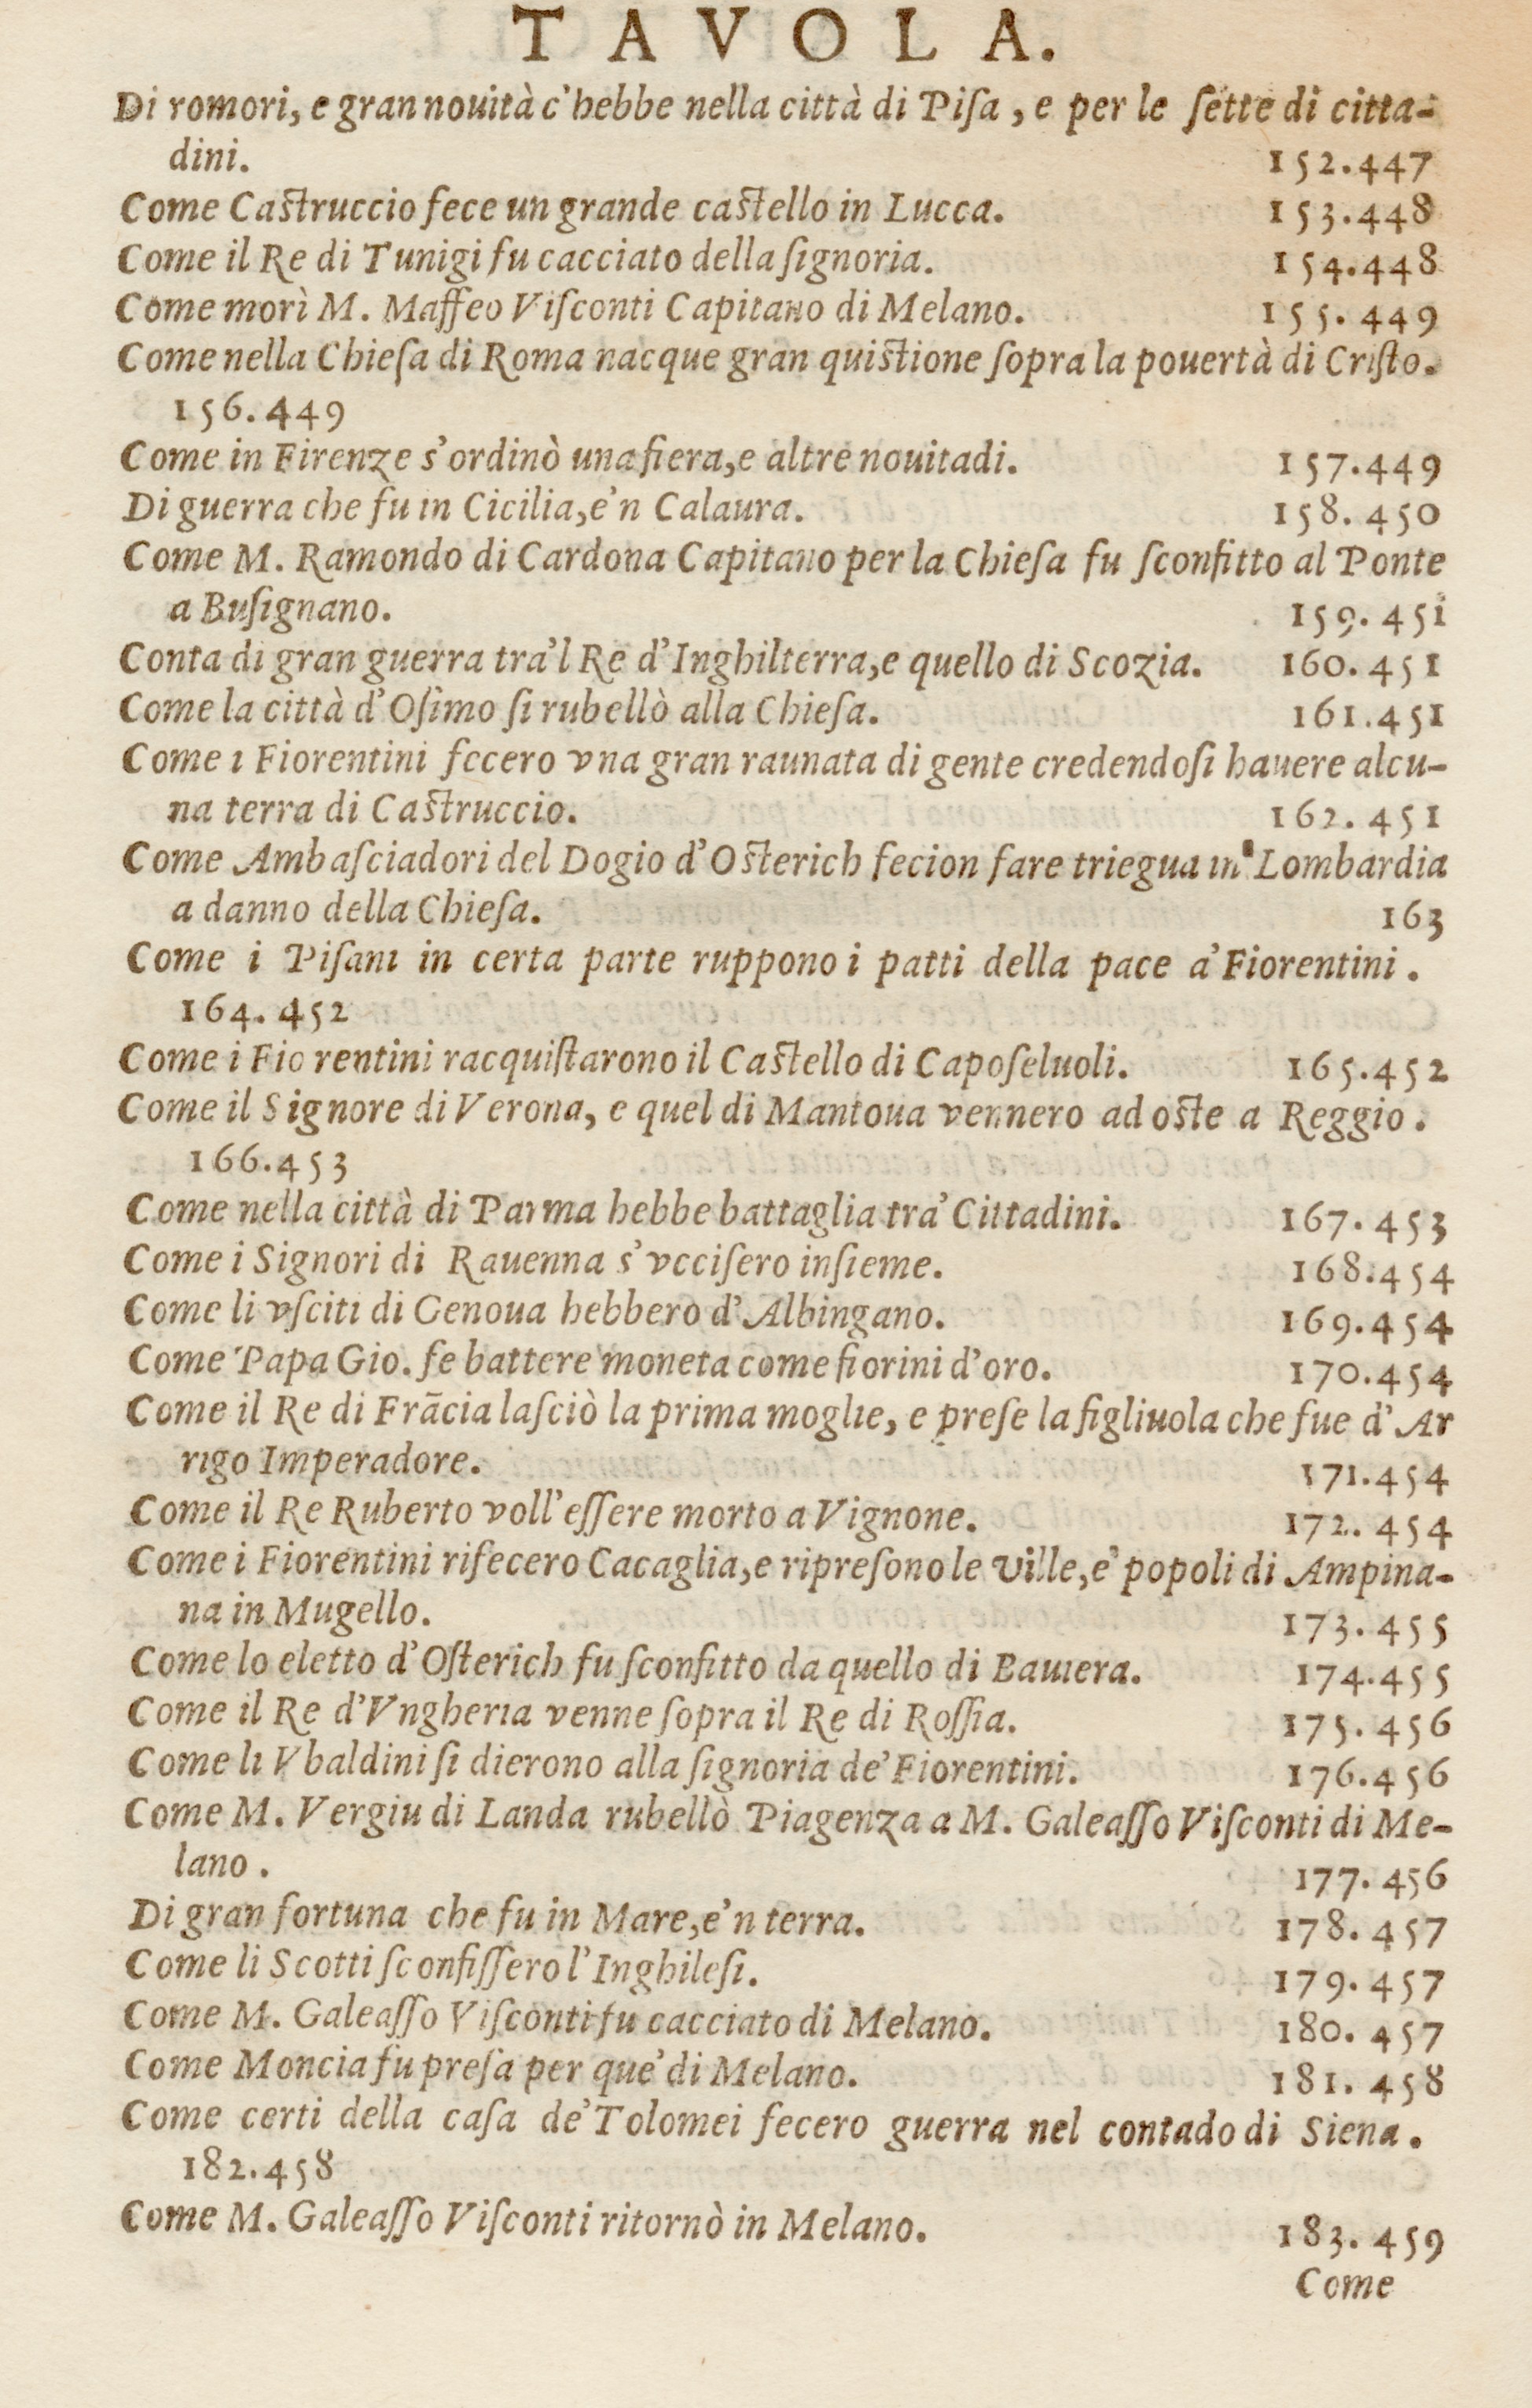 TAVOLA.
Di romori, e gran nouità c'hebbe nella città di Piſa, e per le ſette di citta-
dini. 152.447
Come Caſtruccio fece un grande caſtello in Lucca. 153.448
Come il Re di Tunigi fu cacciato della ſignoria. 154.448
Come morì M. Maffeo Viſconti Capitano di Melano. 155. 449
Come nella Chieſa di Roma nacque gran quiſtione ſopra la pouertà di Criſto.
156.449
Come in Firenze s'ordinò una fiera, e altre nouitadi. 157.449
Di guerra che fu in Cicilia, e'n Calaura. 158. 450
Come M. Ramondo di Cardona Capitano per la Chieſa fu ſconfitto al Ponte
a Buſignano. 159. 451
Conta di gran guerra tra'l Re d'Inghilterra, e quello di Scozia. 160. 451
Come la città d'Oſimo ſi rubellò alla Chieſa. 161.451
Come i Fiorentini fecero vna gran raunata di gente credendoſi hauere alcu-
na terra di Caſtruccio. 162. 451
Come Ambaſciadori del Dogio d'Oſterich fecion fare triegua in Lombardia
a danno della Chieſa. 163
Come i Piſani in certa parte ruppono i patti della pace a'Fiorentini.
164. 452
Come i Fio rentini racquiſtarono il Caſtello di Capoſeluoli. 165.452
Come il Signore di Verona, e quel di Mantoua vennero ad oſte a Reggio.
166.453
Come nella città di Parma hebbe battaglia tra' Cittadini. 167. 453
Come i Signori di Rauenna s'vcciſero inſieme. 168.454
Come li vſciti di Genoua hebbero d'Albingano. 169.454
Come Papa Gio. fe battere moneta come fiorini d'oro. 170.454
Come il Re di Frācia laſciò la prima moglie, e preſe la figliuola che fue d'Ar
rigo Imperadore. 171.454
Come il Re Ruberto voll'eſſere morto a Vignone. 172. 454
Come i Fiorentini rifecero Cacaglia, e ripreſono le ville, e' popoli di Ampina-
na in Mugello. 173. 455
Come lo eletto d'Oſterich fu ſconfitto da quello di Bauiera. 174.455
Come il Re d'Vngheria venne ſopra il Re di Roſſia. 175. 456
Come li Vbaldini ſi dierono alla ſignoria de'Fiorentini. 176.456
Come M. Vergiu di Landa rubellò Piagenza a M. Galeaſſo Viſconti di Me-
lano. 177. 456
Di gran fortuna che fu in Mare, e'n terra. 178. 457
Come li Scotti ſconfiſſero l'Inghileſi. 179. 457
Come M. Galeaſſo Viſconti fu cacciato di Melano. 180. 457
Come Moncia fu preſa per que' di Melano. 181. 458
Come certi della caſa de'Tolomei fecero guerra nel contado di Siena.
182.458
Come M. Galeaſſo Viſconti ritornò in Melano. 183. 459
Come